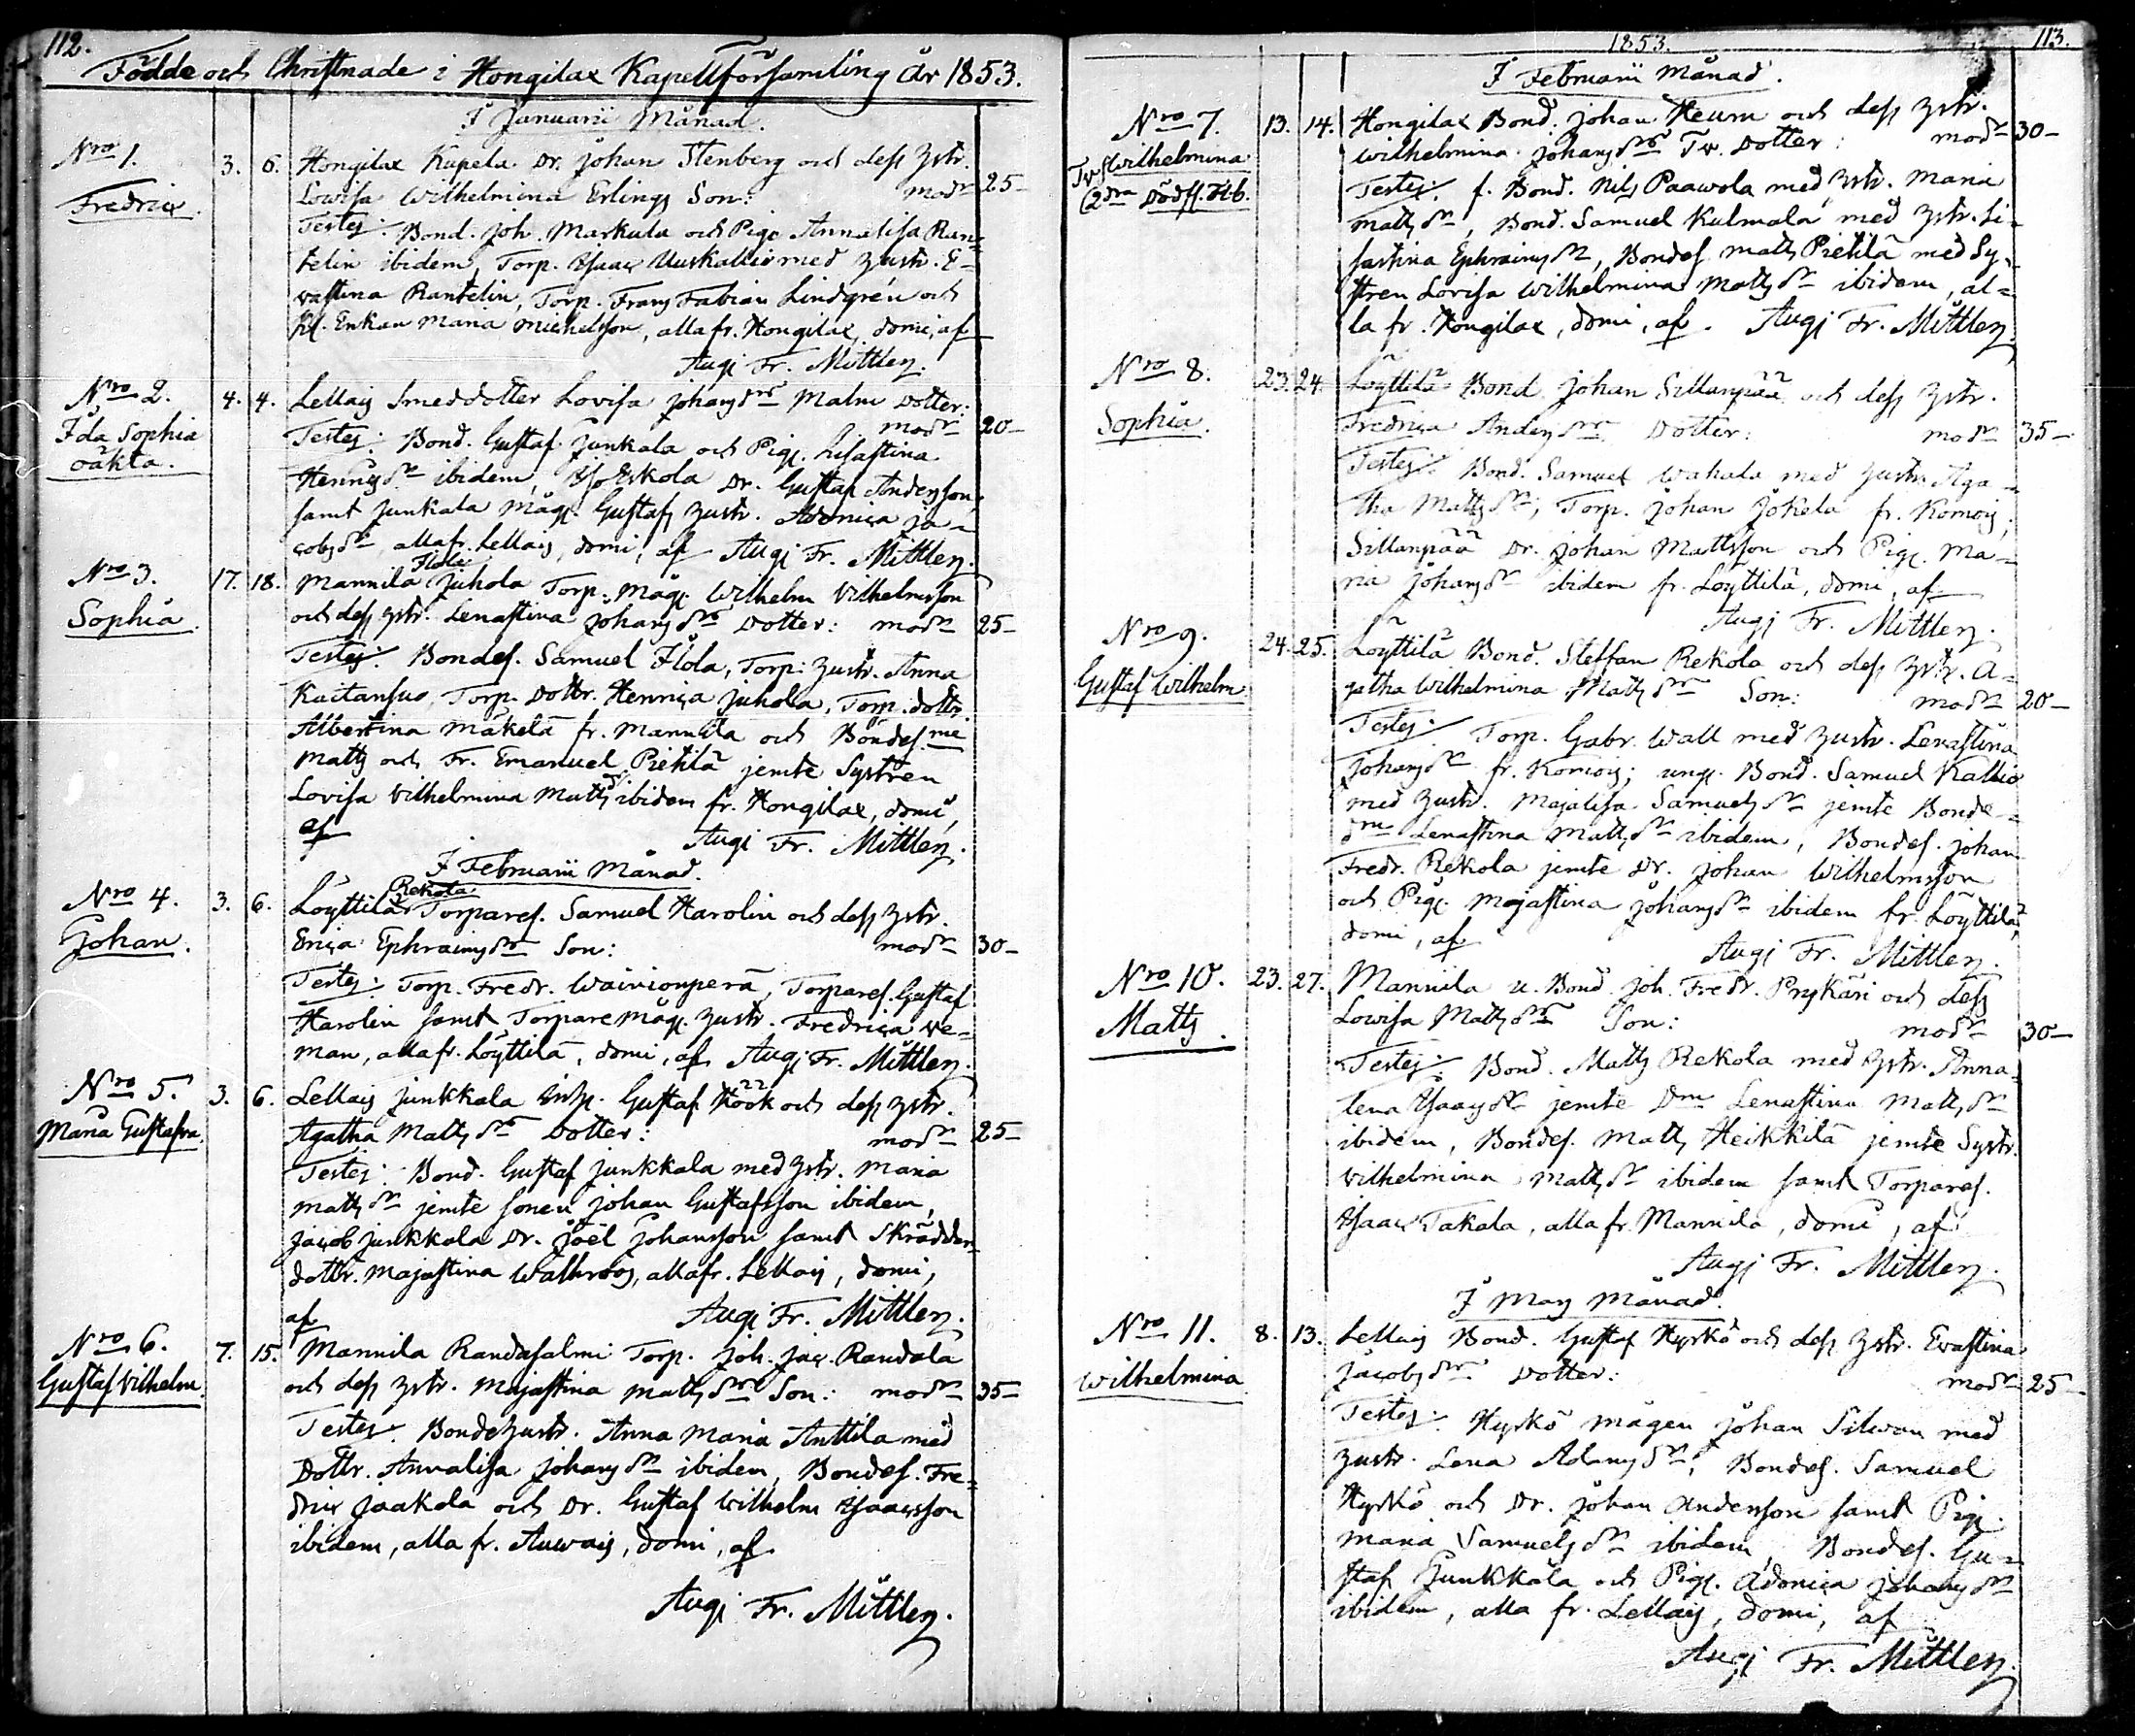 112.
Födde och Christnade i Hongilax Kapellförsamling år 1853.
I Januarii Månad.
Nro 1. 3. 6. Hongilax Kapela. Dr. Johan Stenberg och dess hstr.
Fredric. Lowisa Wilhelmina Erlings Son: modr 25-
Testes: Bond. Joh. Markula och Pig. Annalisa Ran-
telin ibidem, Torp. Isaac Uuskallio med hustr. E-
vastina Rantelin, Torp. Frans Fabian Lindgrén och
Enkan Maria Michelsson, alla fr. Hongilax, domi, af
Augi Fr. Mittler.
Nro 2. 4. 4. Lellais Smeddotter Lovisa Johans dr Malm Dotter:
Ida Sophia modr 20-
oäkta. Testes: Bond. Gustaf Junkala och Pig. Lisastina
Henrics dr ibidem, Eskola Dr. Gustaf Andersson,
samt Junkala mågs Gustafs hustr. Adonica Ja-
cobs dr, alla fr. Lellais, domi, af Augi Fr. Mittler.
Nro 3. 17. 18. Mannila Juhola Torp. måg. Wilhelm Vilhelmsson
Sophia. och dess hstr. Lenastina Johans dr Dotter: modr 25-
Testes: Bondes. Samuel Ilola, Torp: hustr. Anna
Kaitansuo, Torp. Dottr. Henrica Juhola, Torp. dottr.
Albertina Mäkelä fr. Mannila och Böndes.ne
Matts och Fr. Emanuel Pietilä jemte Systren
Lovisa Vilhelmina Matts dr ibidem fr. Hongilax, domi,
af Augi Fr. Mittler.
I Februarii Månad.
Rekola
Nro 4. 3. 6. Löyttilä Torpares. Samuel Harolin och dess hstr.
Johan. Erica Ephraims dr Son: modr 30-
Testes: Torp. Fredr. Wainionperä, Torpares. Gustaf
Harolin samt Torpare mågs hustr. Fredrica We-
man, alla fr. Löyttilä, domi, af Augi Fr. Mittler.
Nro 5. 3. 6. Lellais Junkkala Inh. Gustaf Höök och dess hstr.
Maria Gustafva. Agatha Matts dr Dotter: modr 25-
Testes: Bond. Gustaf Junkkala med hstr. Maria
Matts dr jemte sonen Johan Gustafsson ibidem,
Jacob Junkkala Dr. Joël Johansson samt Skräddar-
dottr. Majastina Wallroos, alla fr. Lellais, domi,
af Augi Fr. Mittler.
Nro 6. 7. 15. Mannila Randasalmi Torp. Joh. Jac. Randala
Gustaf Vilhelm och dess hstr. Majastina Matts dr Son: modr 35-
Testes: Bondehustr. Anna Maria Anttila med
Dottr. Annalisa Johans dr ibidem, Bondes. Fre-
dric Jaakola och Dr. Gustaf Wilhelm Isaacsson
ibidem, alla fr. Auwais, domi, af
Augi Fr. Mittler.
1853. 113.
I Februarii Månad.
Nro 7. 13. 14. Hongilax Bond. Johan Heurn och dess hstr.
Tv. Wilhelmina Wilhelmina Johans dr Tv. Dotter: modr 30-
(2dra Dödf. Flb. Testes: f. Bond. Nils Paawola med hstr. Maria
Matts dr, Bond. Samuel Kulmala med hstr. Li-
sastina Ephraims dr, Bondes. Matts Pietilä med Sy-
stren Lovisa Wilhelmina Matts dr ibidem, al-
la fr. Hongilax, domi, af. Augi Fr. Mittler.
Nro 8. 23. 24. Löyttilä Bond. Johan Sillanpää och dess hstr.
Sophia. Fredrica Anders dr Dotter: modr 35-
Testes: Bond. Samuel Wahala med hustr. Aga-
tha Matts dr, Torp. Johan Jokela fr. Komois,
Sillanpää Dr. Johan Mattsson och Pig. Ma-
ria Johans dr ibidem fr. Löyttilä, domi, af
Augi Fr. Mittler.
Nro 9. 24. 25. Löyttilä Bond. Steffan Rekola och dess hstr. A-
Gustaf Wilhelm gatha Wilhelmina Matts dr Son: modr 20-
Testes: Torp. Gabr. Wall med hustr. Lenastina
Johans dr fr. Komois; ung. Bond. Samuel Kallio
med hustr. Majalisa Samuels dr jemte Bonde-
dm Lenastina Matts dr ibidem, Bondes. Johan
Fredr. Rekola jemte Dr. Johan Wilhelmsson
och Pig. Majastina Johans dr ibidem fr. Löyttilä,
domi, af Augi Fr. Mittler.
Nro 10. 23. 27. Mannila u. Bond. Joh. Fredr. Prykäri och dess
Matts. Lowisa Matts dr Son: modr 30-
Testes: Bond. Matts Rekola med hstr. Anna-
lena Isaacs dr jemte Dm Lenastina Matts dr
ibidem, Bondes. Matts Heikkilä jemte Systr.
Vilhelmina Matts dr ibidem samt Torpares.
Isaac Takala, alla fr. Mannila, domi, af
Augi Fr. Mittler.
I Maij Månad.
Nro 11. 8. 13. Lellais Bond. Gustaf Hyrkö och dess hstr. Evastina
Wilhelmina Jacobs dr Dotter: modr 25-
Testes: Hyrkö mågen Johan Silwan med
hustr. Lena Adams dr, Bondes. Samuel
Hyrkö och Dr. Johan Andersson samt Pig.
Maria Samuels dr ibidem, Bondes. Gu-
staf Junkkala och Pig. Adonica Johans dr
ibidem, alla fr. Lellais, domi, af
Augi Fr. Mittler.